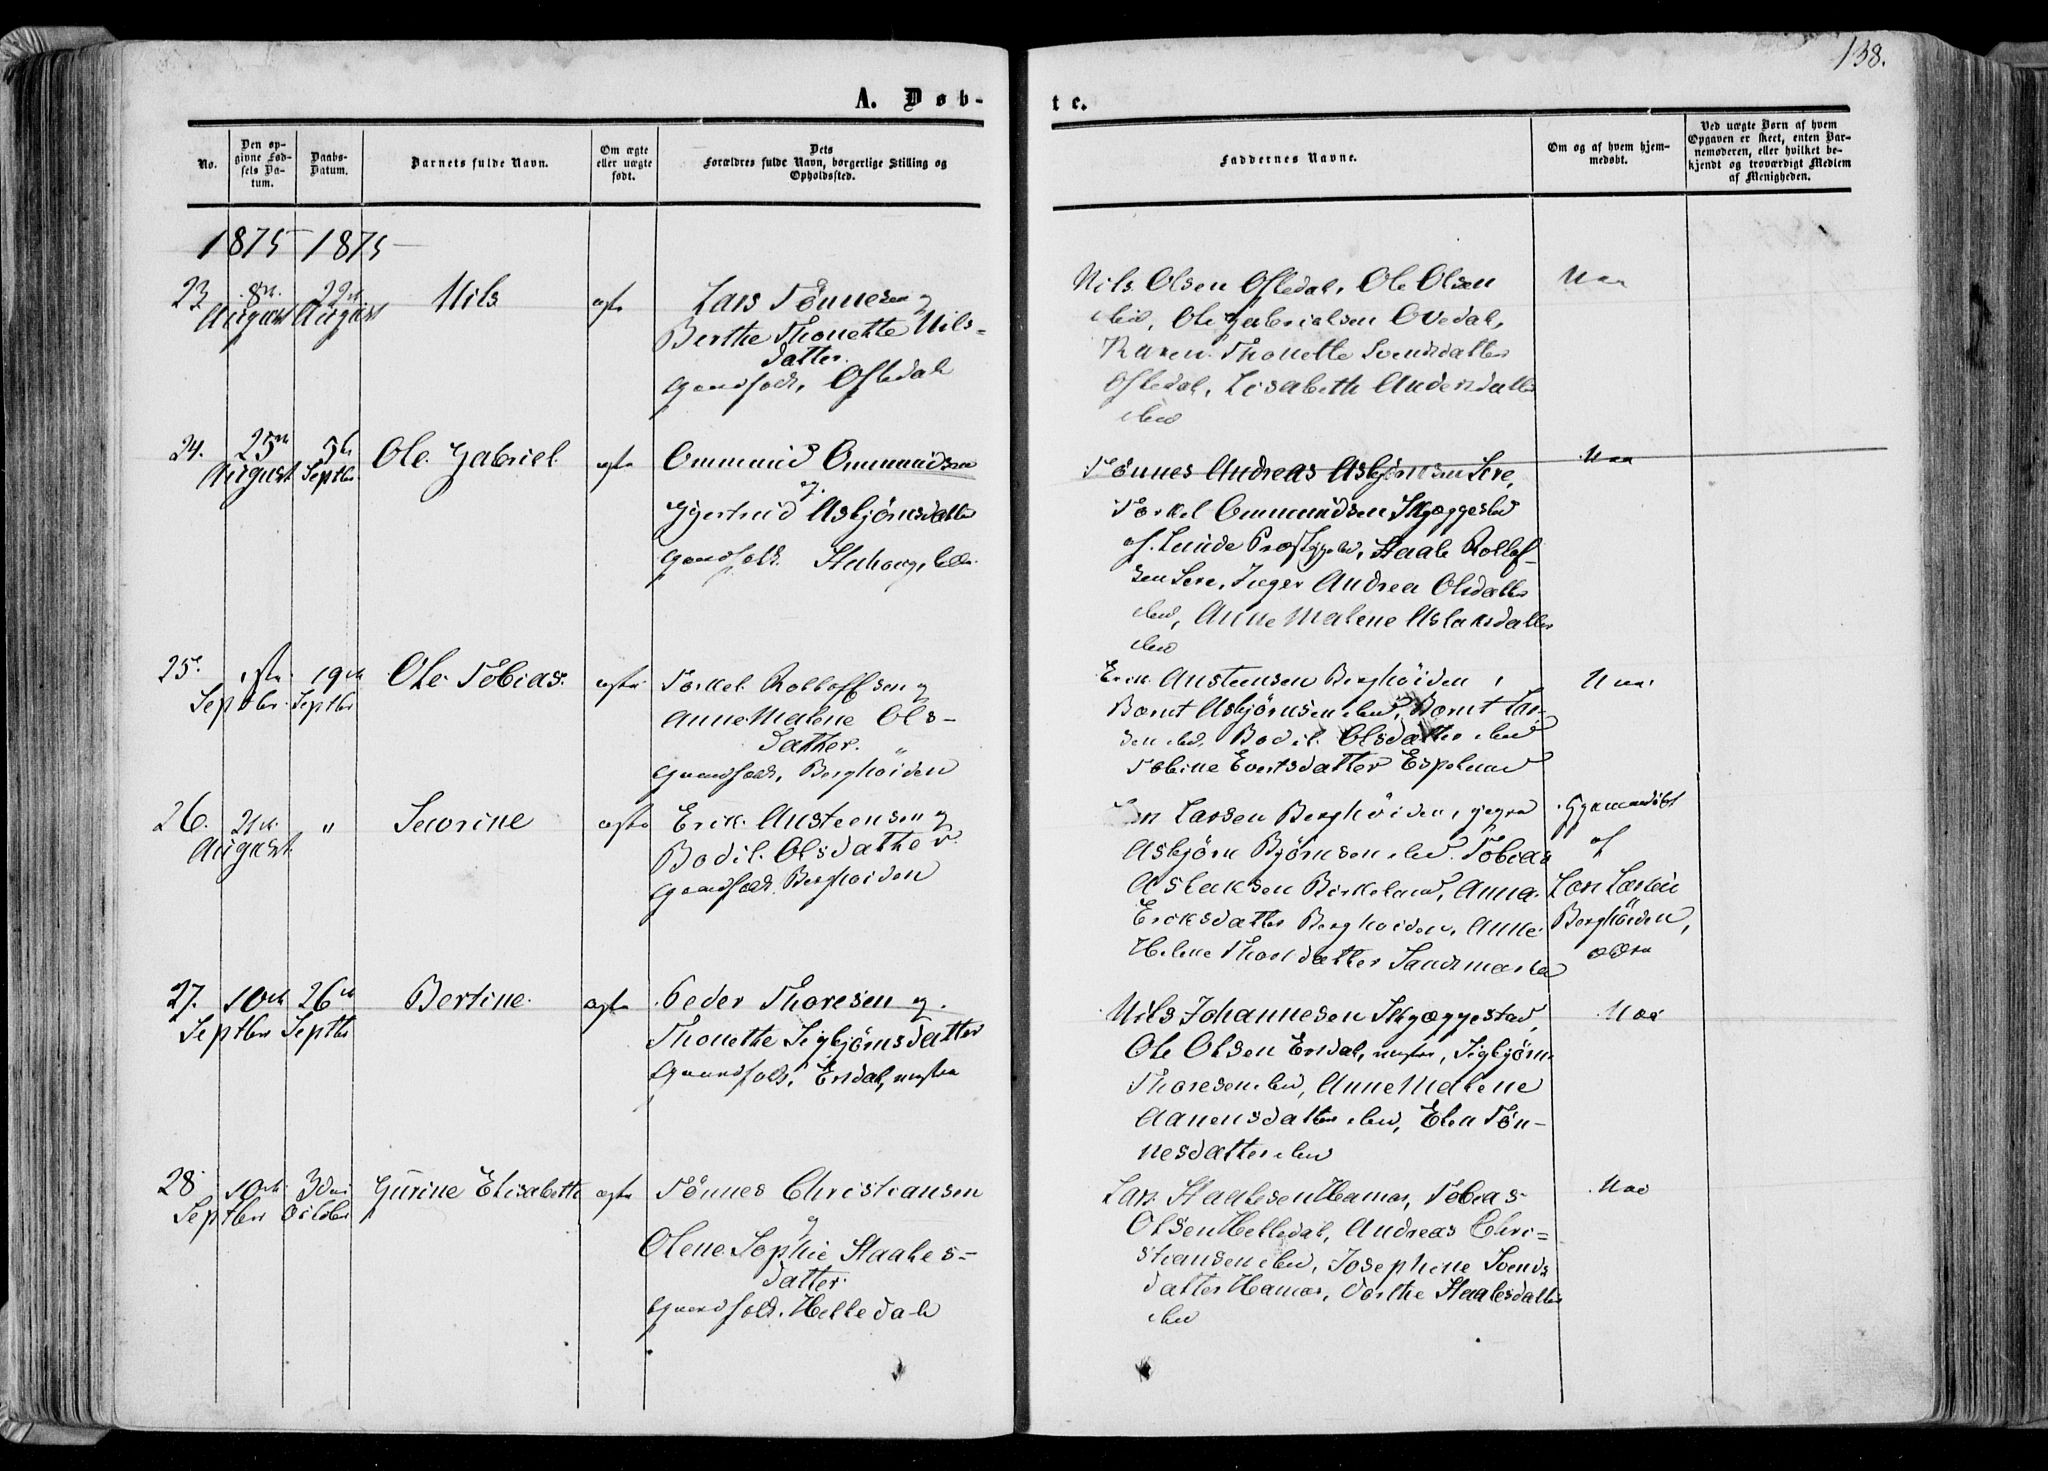 138.
A. Døb-
te.
No.
Den op-
givne Fød-
sels Da-
tum.
Daabs-
Datum.
Barnets fulde Navn.
Om ægte
eller uægte
født.
Dets
Forældres fulde Navn, borgerlige Stilling og
Opholdssted.
Faddernes Navne.
Om og af hvem hjem-
medøbt.
Ved uægte Børn af hvem
Opgaven er skeet, enten Bar-
nemoderen, eller hvilket be-
kjendt og troværdigt Medlem
af Menigheden.
1875 1875
23
8de
August
22de
August
Nils
ægte
Lars Tönnesen og
Berthe Thonette Nils-
datter.
Gaardfolk, Ofstedal
Nils Olsen Ofstedal, Ole Olsen
ibid, Ole Gabrielsen Ovedal,
Karen Thonette Svendsdatter
Ofstedal, Lisabeth Andersdatter
ibid
24.
25de
August
5te
Septbr
Ole Gabriel
ægte
Ommund Ommundsen
og
Gjertrud Asbjörnsdatter
Gaardfolk
Tönnes Andreas Asbjörnsen Lere,
Torkel Ommundsen Skjæggestad
af Lunde Præstegjeld, Staale Rollof-
sen Lere, Inger Andrea Olsdatter
ibid, Anne Malene Aslaksdatter
ibid
25.
1ste
Septbr
19de
Septbr
Ole Tobias.
ægte
Torkel Rolloffsen og
Anne Malene Ols-
datter.
Gaardfolk, Berghöiden
Erik Austeensen Berghöiden,
Bernt Asbjörnsen ibid, Bernt Lar-
sen ibid, Bodil Olsdatter ibid
Tobine Evertsdatter Espeland
26.
21de
August
"
Sevrine
ægte
Erik Austeensen og
Bodil Olsdatter.
Gaardfolk Berghöiden
Larsen Berghöiden,
Asbjörn Bjørnsen ibid. Tobias
Aslaksen Birkeland, Anna
Eriksdatter Berghoiden, Anne
Helene Thorsdatter Sandsmarka
Hjemmedöbt
af
Lars Larsen
Berghöiden,
27.
10de
Septbr
26de
Septbr
Bertine.
ægte
Peder Thoresen og
Thonette Sigbjörnsdatter
Gaardfolk, Ersdal,
Nils Johannesen Skjæggestad,
Ole Olsen Ersdal, Sigbjörn
Thoresen ibid, Anne Malene
Aanensdatter ibid, Elen Tön-
nesdatter ibid
28
10de
Septbr
3die
October
Gurine Elisabeth
ægte
Tönnes Christiansen
og
Olene Sophie Staales-
datter.
Gaardfolk. Helledal
Lars Staalesen Hamar, Tobias
Olsen Helledal, Andreas Chri-
stiansen ibid, Josephine Svends
datter Hamar, Dorthe Staalesdatter
ibid